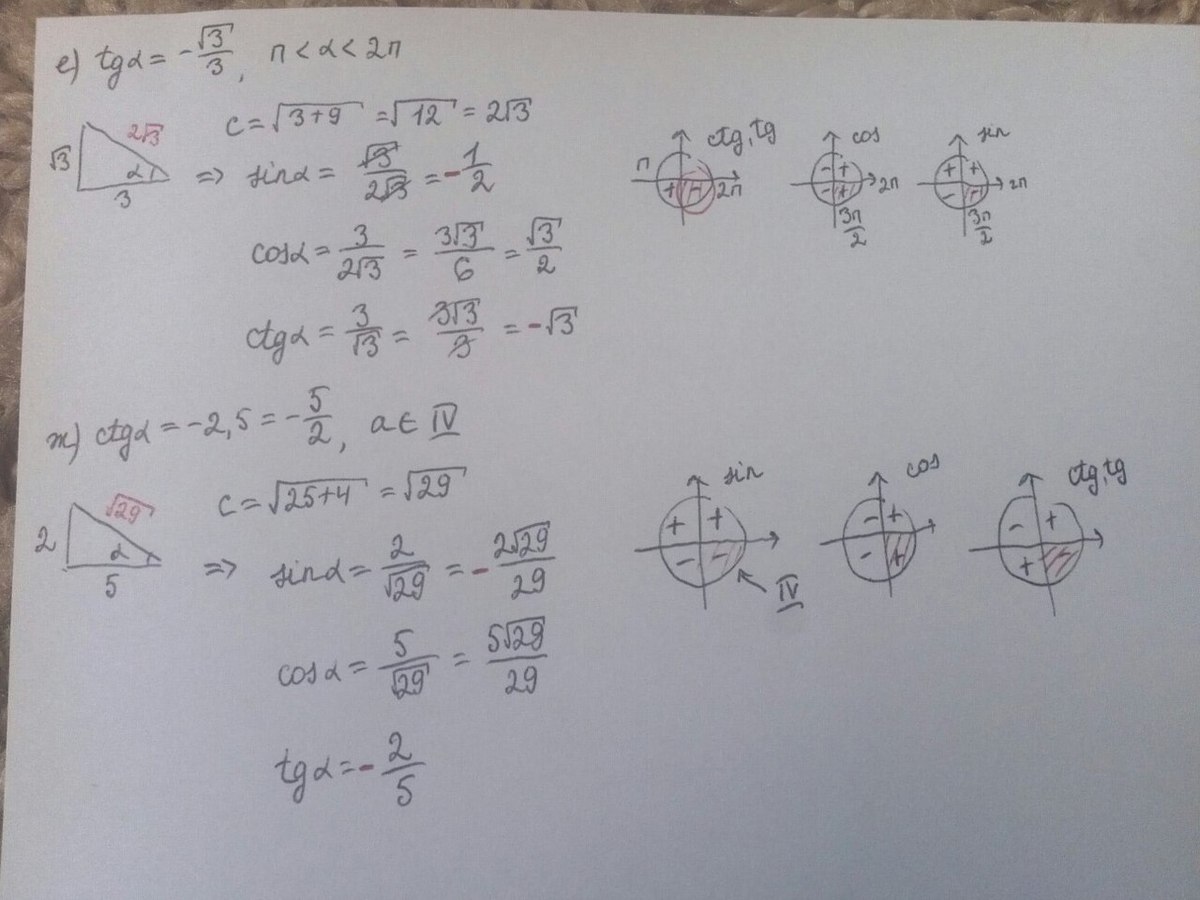 е) tgα = -√3/3, π < α < 2π
c = √(3+9) = √12 = 2√3
√3 2√3 α 3
⇒ sinα = √3/2√3 = -1/2
cosα = 3/2√3 = 3√3/6 = √3/2
ctgα = 3/√3 = 3√3/3 = -√3
ctg, tg π + - 2π
cos - + - + 2π 3π/2
sin + + - - 2π 3π/2
ж) ctgα = -2,5 = -5/2, a ∈ IV
c = √(25+4) = √29
2 √29 α 5
⇒ sinα = 2/√29 = -2√29/29
cosα = 5/√29 = 5√29/29
tgα = -2/5
sin + + - - IV
cos - + - +
ctg, tg - + + -